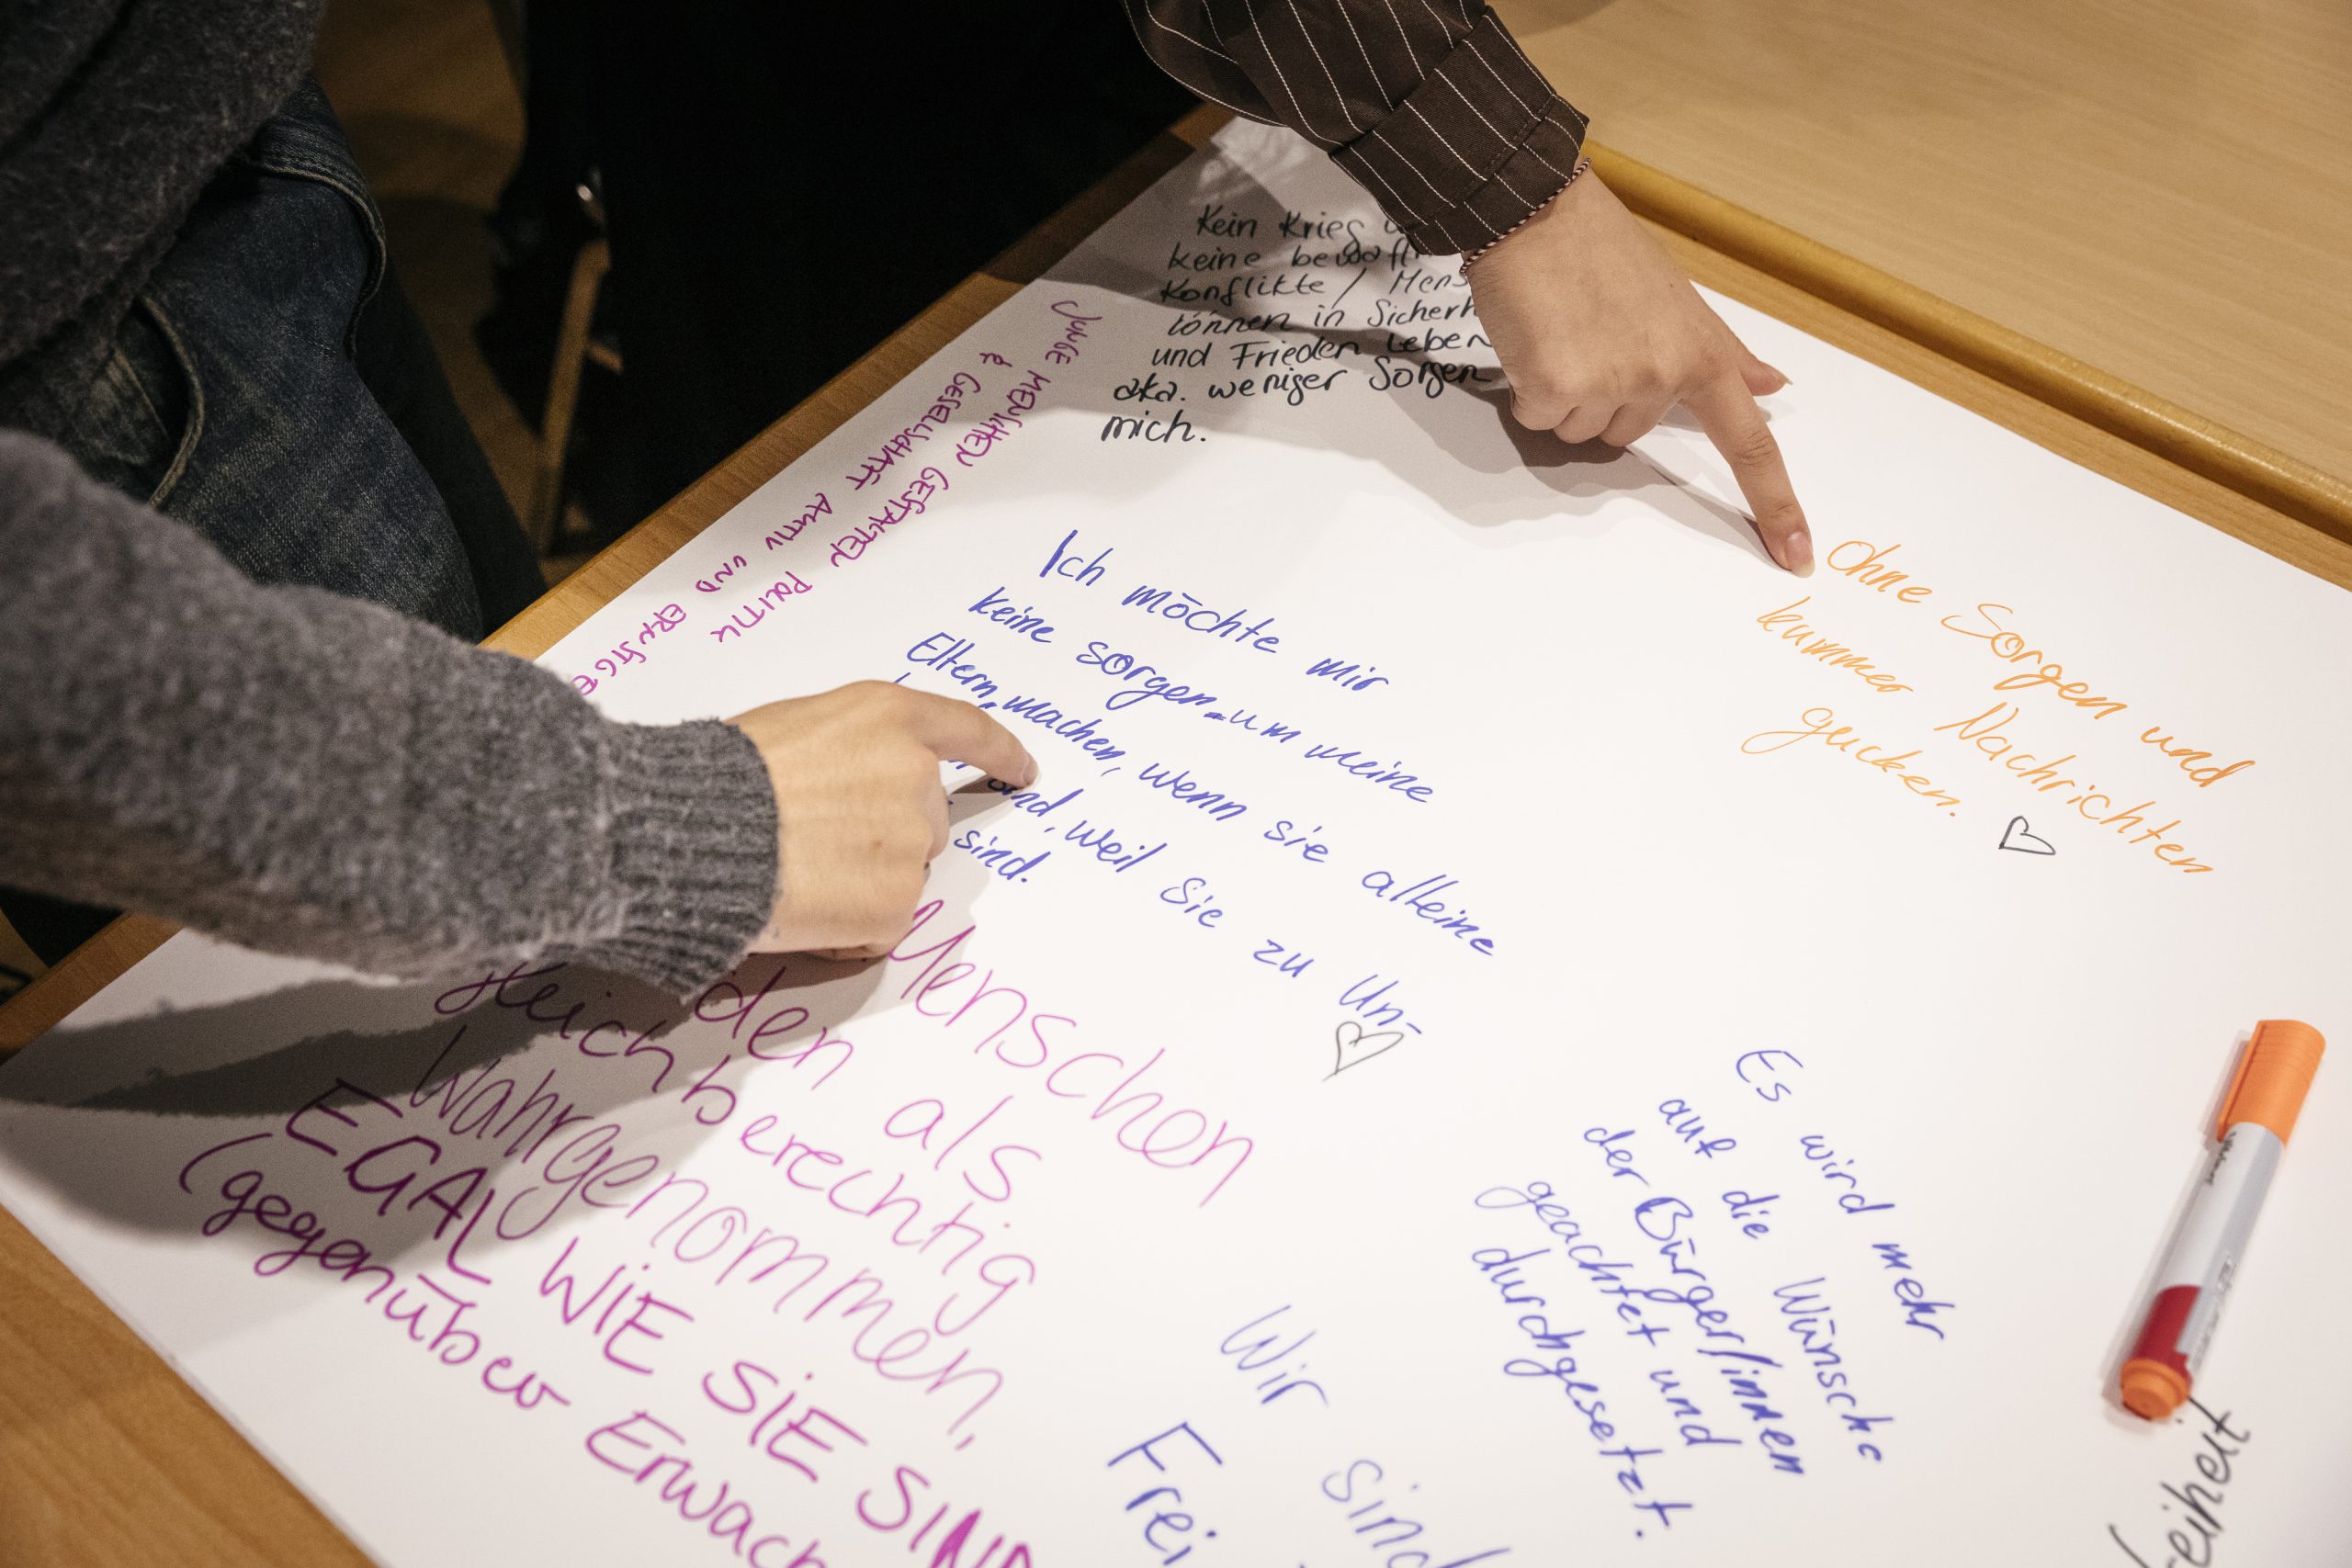 Kein Krieg
keine
Konflikte /
können in
und Frieden Leben
aka. weniger Sorgen
mich.
JUNGE MENSCHEN GESTALTEN POLITIK
& GESELLSCHAFT AKTIV UND
Ich möchte mir
keine sorgen um meine
Eltern machen, wenn sie alleine
weil sie zu Un-
sind.
Ohne Sorgen und
kummer Nachrichten
gucken.
Menschen
den als
gleichberechtig
Wahrgenommen,
EGAL WIE SIE SIND
(gegenüber
Es wird mehr
auf die Wünsche
der Bürger/innen
geachtet und
durchgesetzt.
Wir sind
Frei